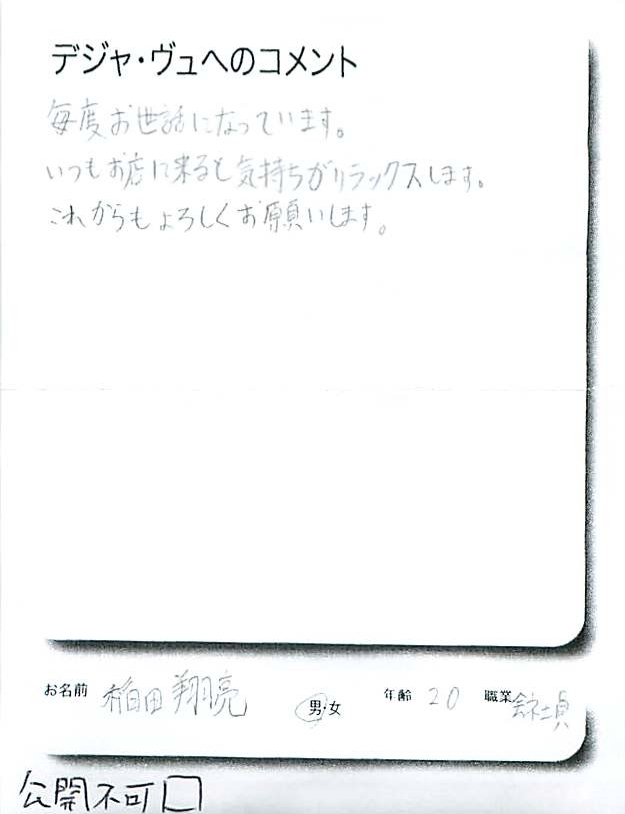 デジャ・ヴュへのコメント
毎度お世話になっています。
いつもお店に来ると気持ちがリラックスします。
これからもよろしくお願いします。
お名前 稲田翔亮 男・女 年齢 20 職業 会社員
公開不可□